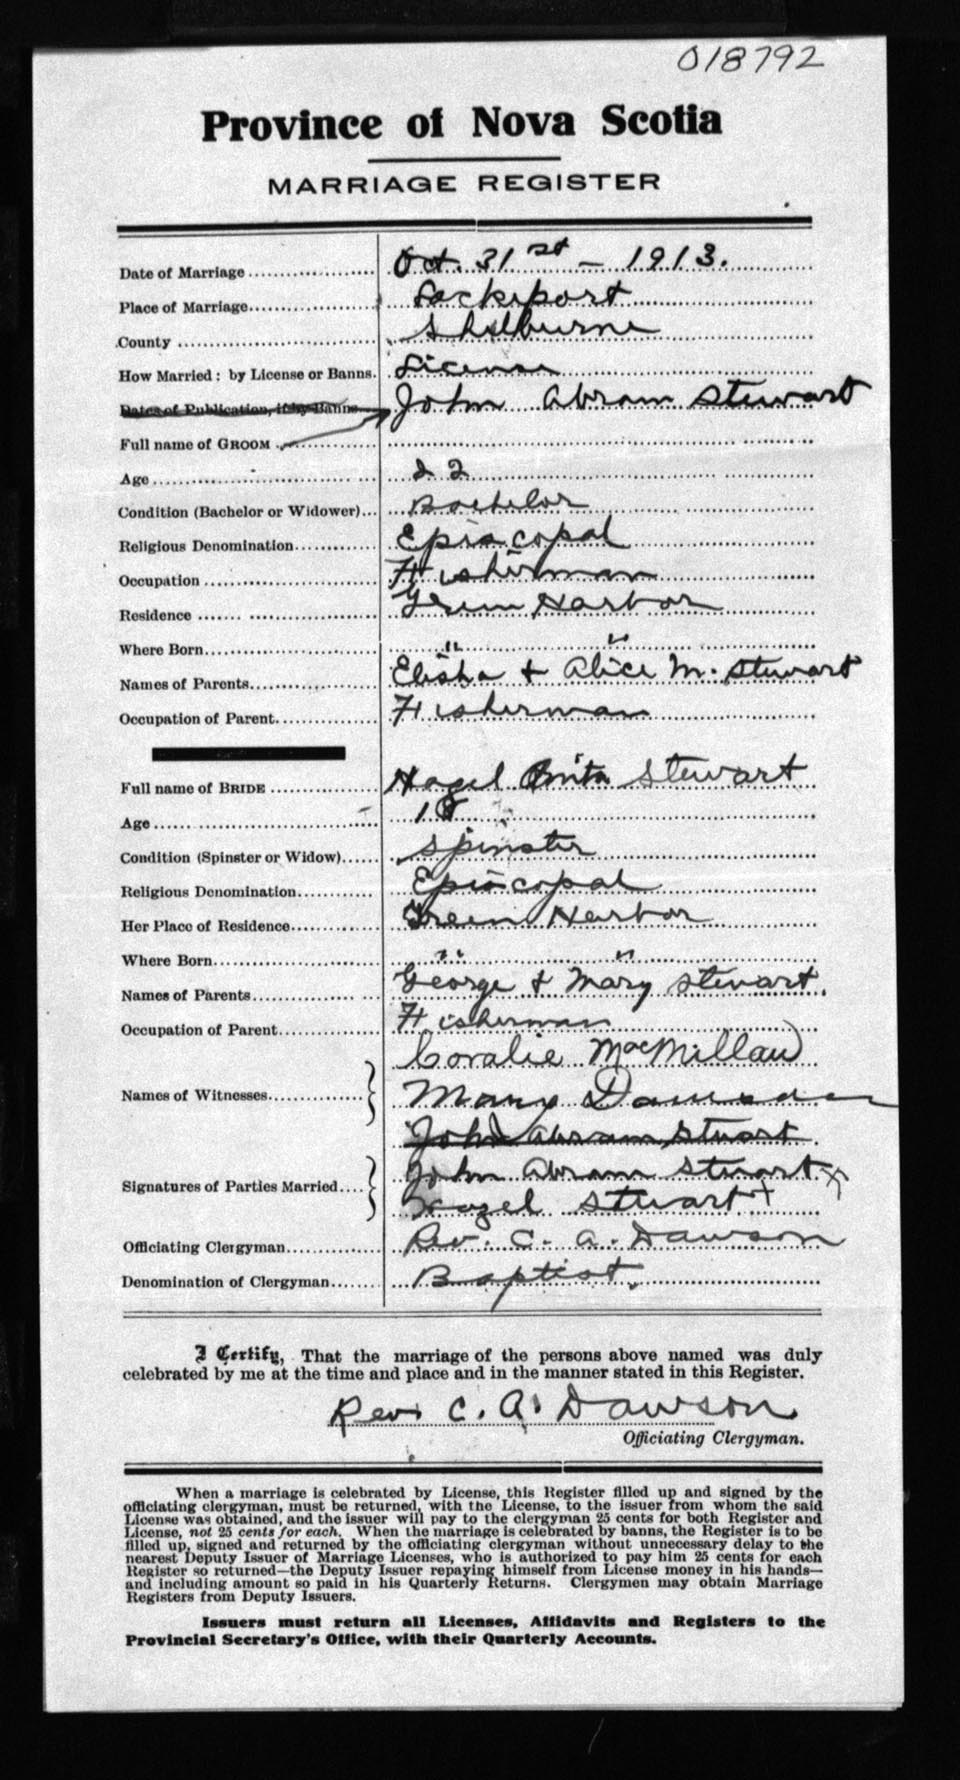 018792
Province of Nova Scotia
MARRIAGE REGISTER
Date of Marriage Oct. 31st - 1913.
Place of Marriage Lockeport
County Shelburne
How Married: by License or Banns. License
Dates of Publication, if by Banns John Abram Stewart
Full name of GROOM
Age 22
Condition (Bachelor or Widower) Bachelor
Religious Denomination Episcopal
Occupation Fisherman
Residence Green Harbor
Where Born " "
Names of Parents Elisha + Alice M. Stewart
Occupation of Parent Fisherman
Full name of BRIDE Hazel Anita Stewart
Age 18
Condition (Spinster or Widow) Spinster
Religious Denomination Episcopal
Her Place of Residence Green Harbor
Where Born " "
Names of Parents George + Mary Stewart.
Occupation of Parent Fisherman
Coralie MacMillan
Names of Witnesses Mary Dawson
John Abram Stewart.
Signatures of Parties Married John Abram Stewart x
Hazel Stewart x
Officiating Clergyman Rev. C. A. Dawson
Denomination of Clergyman Baptist.
I Certify, That the marriage of the persons above named was duly
celebrated by me at the time and place and in the manner stated in this Register.
Rev. C. A. Dawson
Officiating Clergyman.
When a marriage is celebrated by License, this Register filled up and signed by the
officiating clergyman, must be returned, with the License, to the issuer from whom the said
License was obtained, and the issuer will pay to the clergyman 25 cents for both Register and
License, not 25 cents for each. When the marriage is celebrated by banns, the Register is to be
filled up, signed and returned by the officiating clergyman without unnecessary delay to the
nearest Deputy Issuer of Marriage Licenses, who is authorized to pay him 25 cents for each
Register so returned—the Deputy Issuer repaying himself from License money in his hands—
and including amount so paid in his Quarterly Returns. Clergymen may obtain Marriage
Registers from Deputy Issuers.
Issuers must return all Licenses, Affidavits and Registers to the
Provincial Secretary's Office, with their Quarterly Accounts.